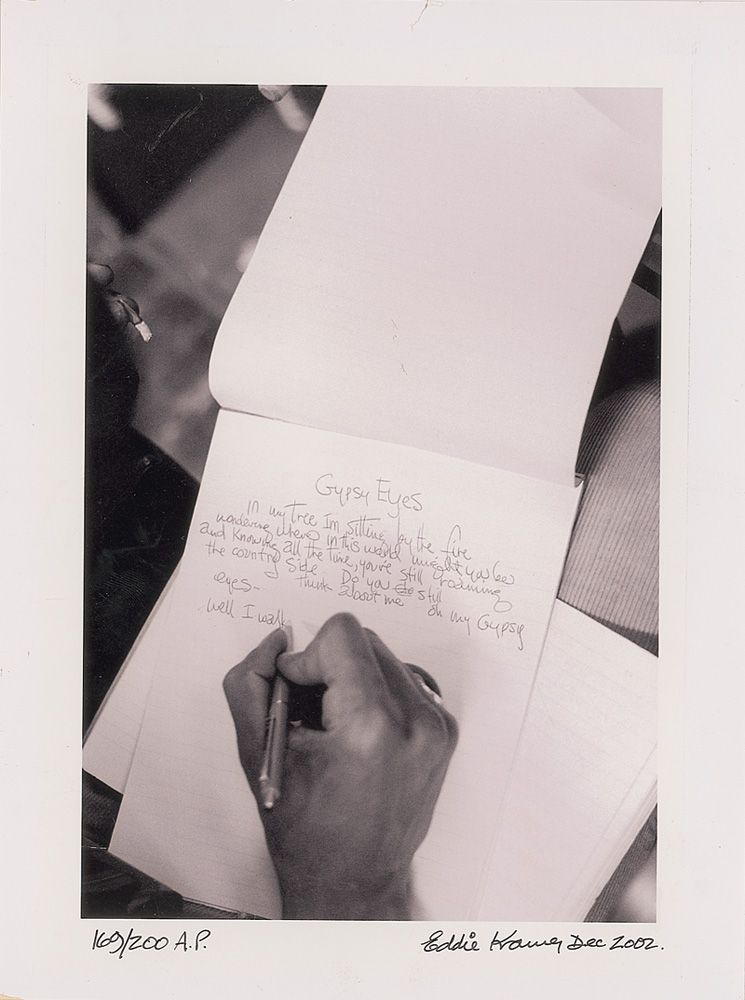 Gypsy Eyes
In my Tree Im sitting by the fire
wondering where in this world might you be
and Knowing all the time, you're still roaming
the country side Do you still
think about me oh my Gypsy
eyes-
well I walk
169/200 A.P.
Eddie Kramer Dec 2002.